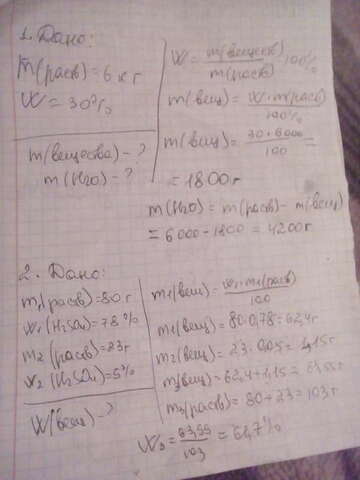 1. Дано:
m(раств) = 6 кг
W = 30%
m(вещества) - ?
m(H2O) - ?
W = m(веществ) / m(раств) · 100%
m(вещ) = W · m(раств) / 100%
m(вещ) = 30 · 6000 / 100 =
= 1800 г
m(H2O) = m(раств) - m(вещ)
= 6000 - 1800 = 4200 г
2. Дано:
m1(раств) = 80 г
W1(H2SO4) = 78%
m2(раств) = 23 г
W2(H2SO4) = 5%
W(вещ) - ?
m1(вещ) = W1 · m1(раств) / 100
m1(вещ) = 80 · 0,78 = 62,4 г
m2(вещ) = 23 · 0,05 = 1,15 г
m3(вещ) = 62,4 + 1,15 = 63,55 г
m3(раств) = 80 + 23 = 103 г
W3 = 63,55 / 103 = 61,7%